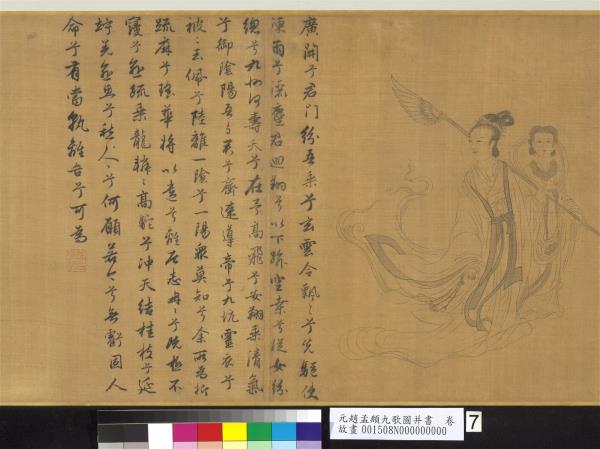 廣開兮君门紛吾乘兮玄雲令飄〻兮先驅使
涷雨兮灑塵君迴翔兮以下踰空桑兮從女紛
總兮九州何壽夭兮在予高飛兮安翔乘清氣
兮御陰陽吾与君兮齊速導帝兮九坑靈衣兮
被〻玉佩兮陸離一陰兮一陽眾莫知兮余所為折
疏麻兮瑤華將以遺兮離居志冉〻兮既極不
寖兮愈疏乘龍轔〻高駝兮沖天結桂枝兮延
竚羌愈思兮愁人〻兮何願若今兮無虧固人
命兮有當孰離合兮可為
元趙孟頫九歌圖并書 卷
故畫001508N000000000
7